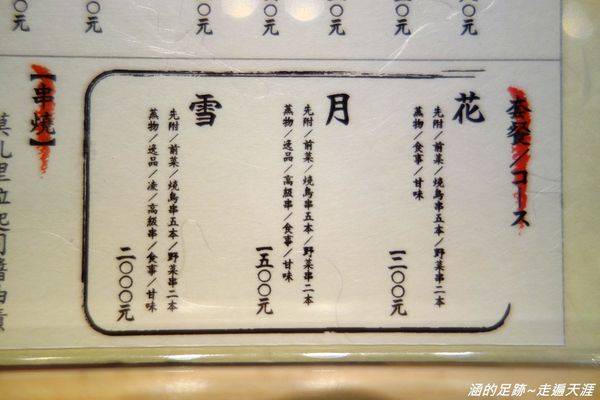 〇元
〇元
〇元
〇元
〇元
〇元
套餐/コース
花
先附/前菜/燒鳥串五本/野菜串二本
蒸物/食事/甘味
一二〇〇元
月
先附/前菜/燒鳥串五本/野菜串二本
蒸物/逸品/高級串/食事/甘味
一五〇〇元
雪
先附/前菜/燒鳥串五本/野菜串二本
蒸物/逸品/凌/高級串/食事/甘味
二〇〇〇元
【串燒】
莫札里拉起司醬油漬
涵的足跡~走遍天涯